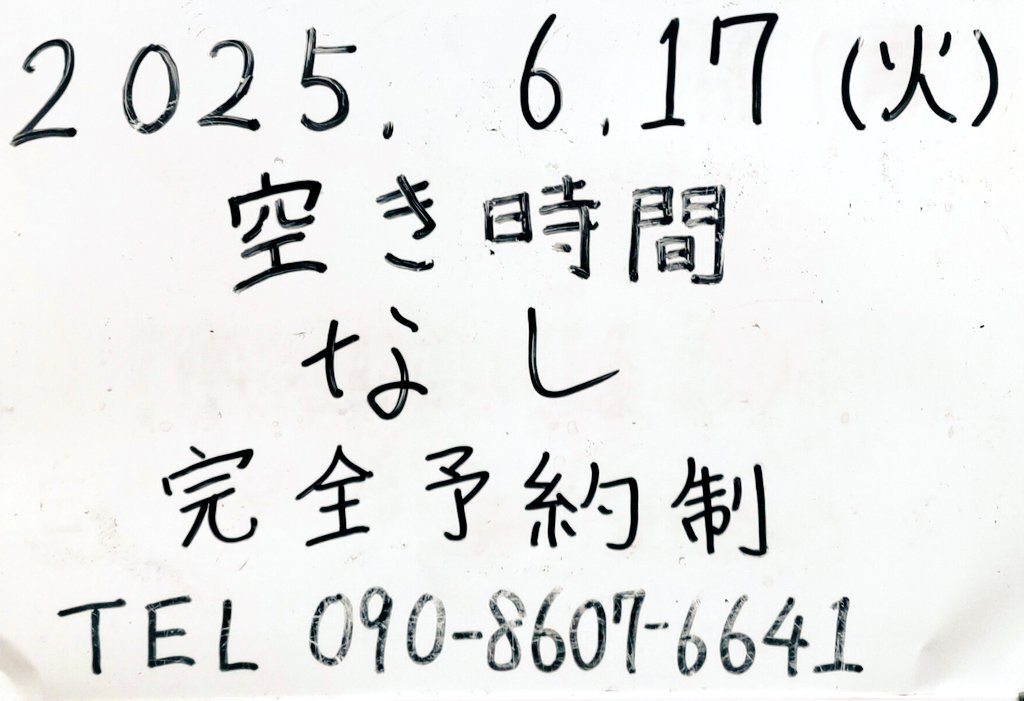 2025. 6.17(火)
空き時間
なし
完全予約制
TEL 090-8607-6641